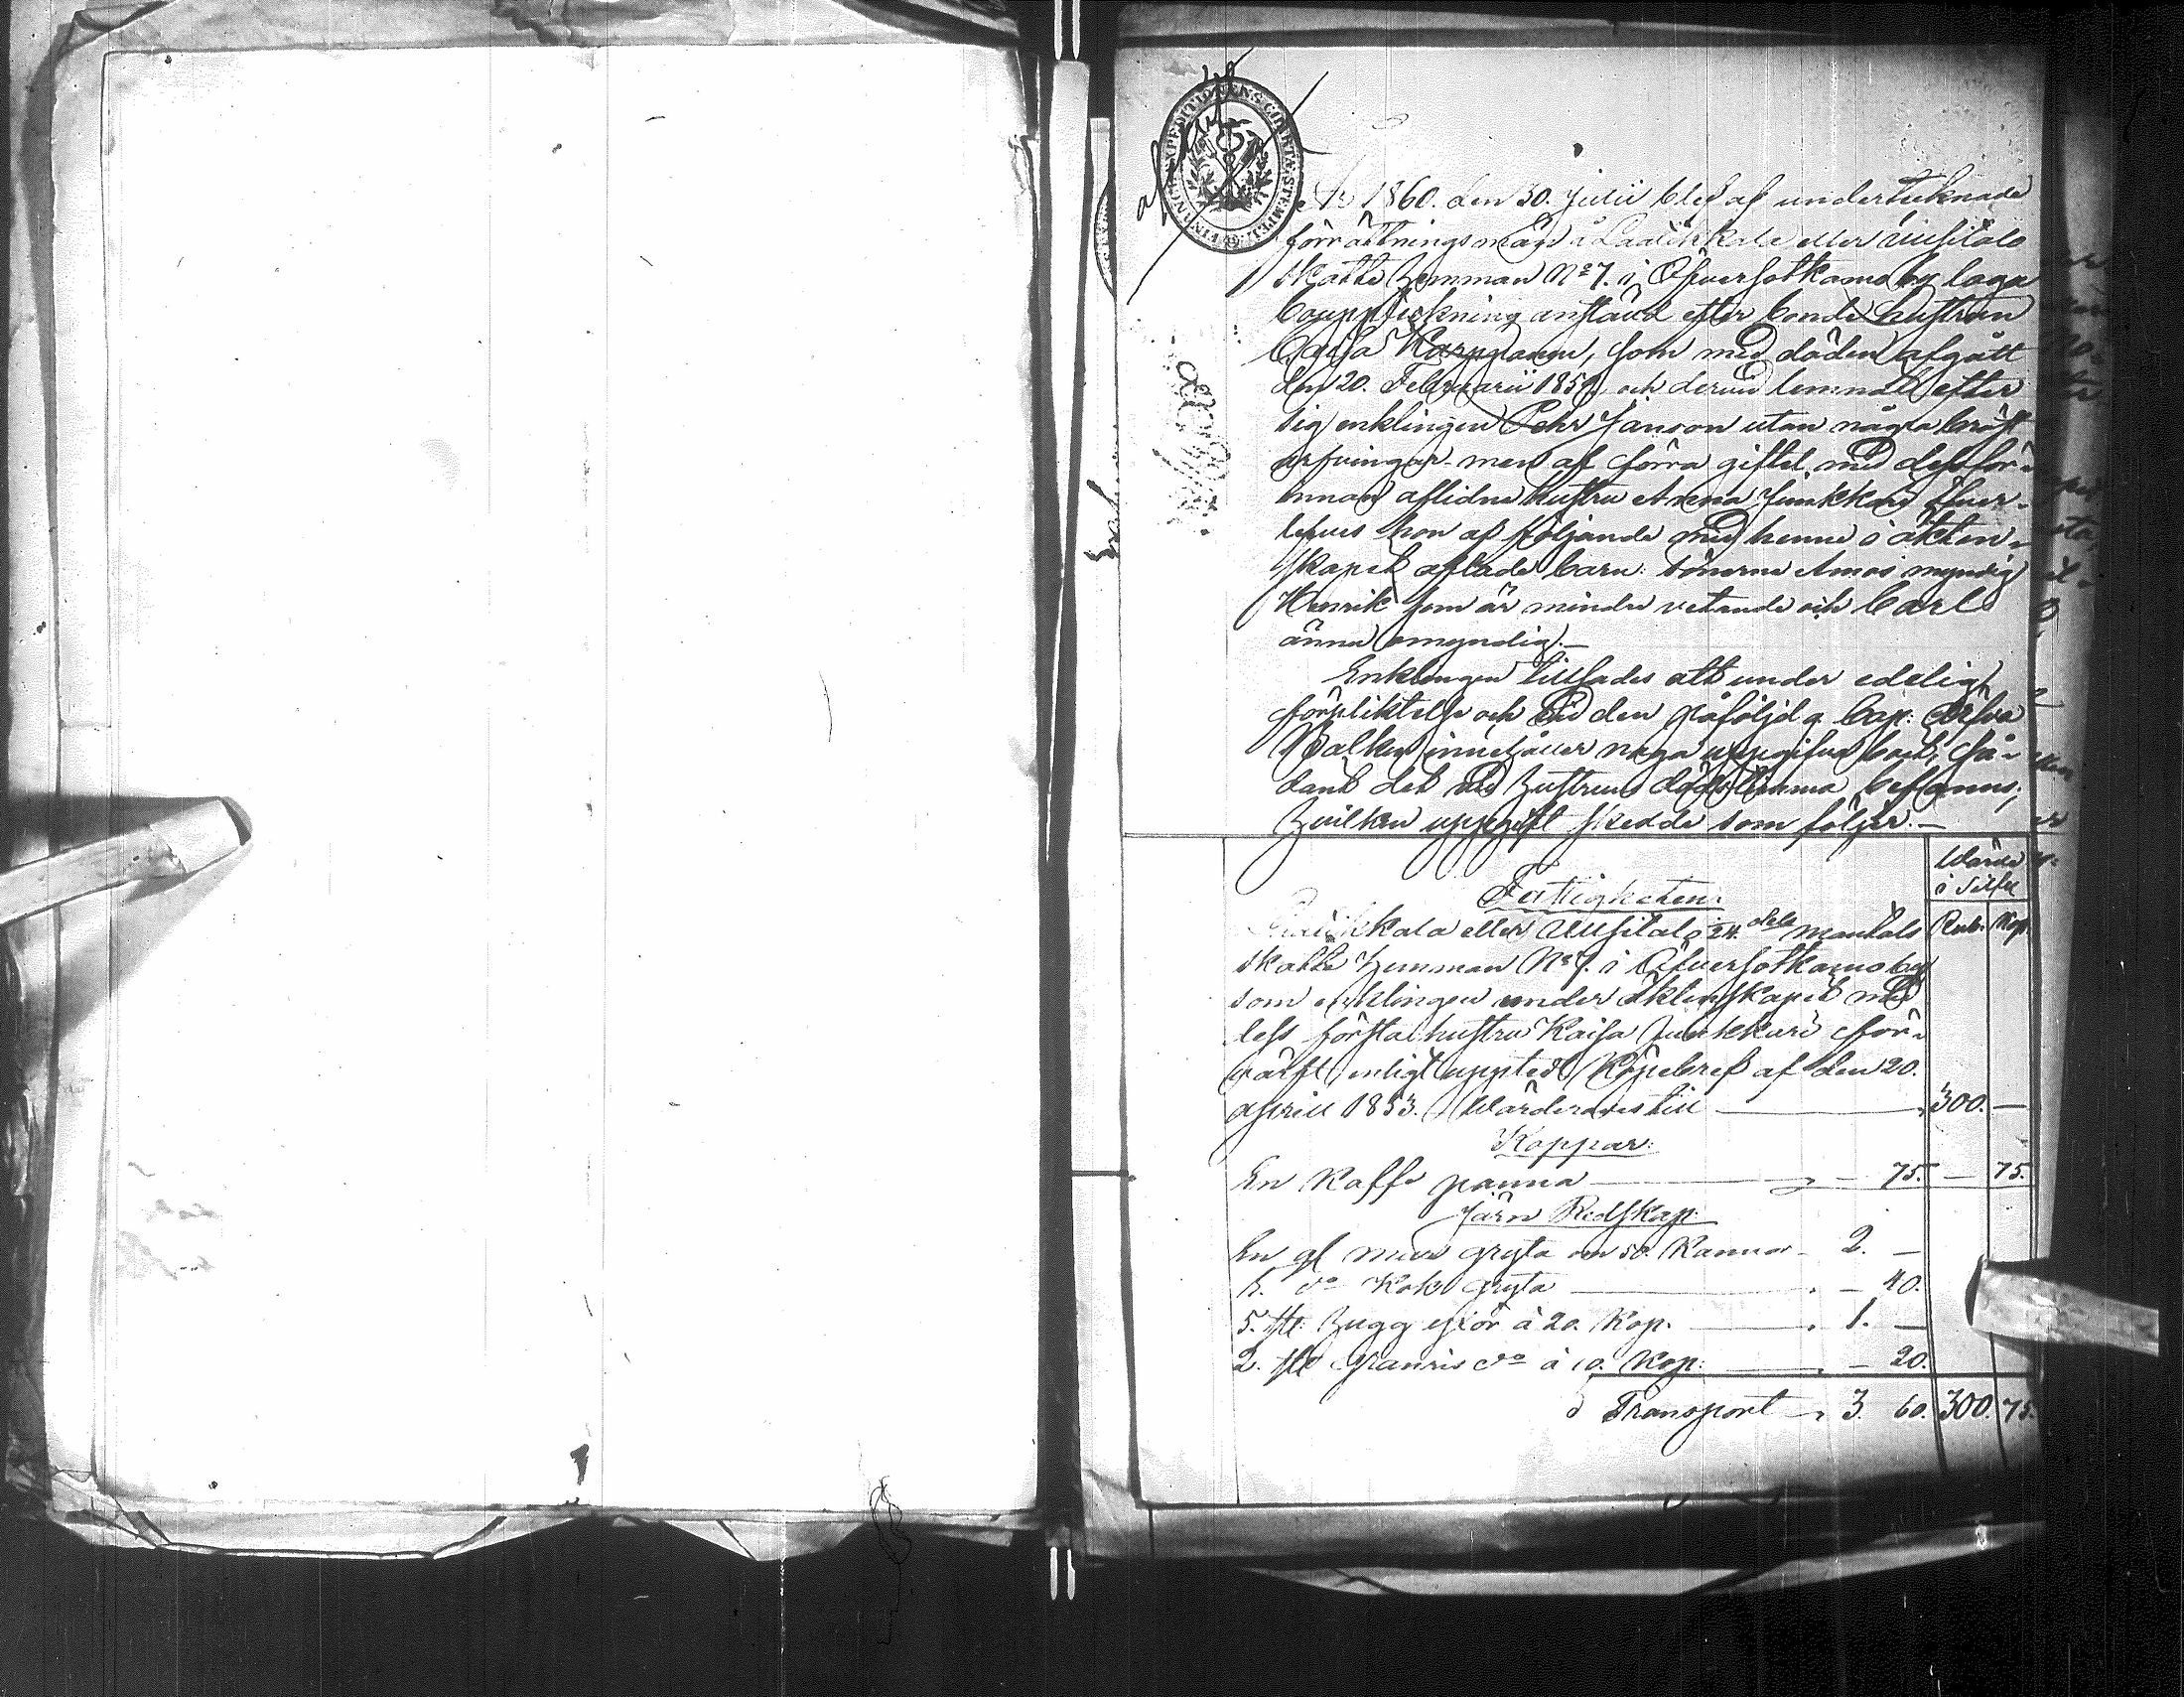 År 1860. den 30. Julii blef af undertecknade
förrättningsmän å Laaikkala eller Uusitalo
skatte Hemman No 7. i Öfversotkamo by laga
bouppteckning anstäld efter bonde hustrun
Caisa Karppanen, som med döden afgått
den 20. Februarii 185 och dervid lemnat efter
sig enklingen Pehr Janson utan några bröst
arfvingar men af förra giftet med dess för-
innan aflidne hustru Anna Junkkari öfver-
lefves hon af följande med henne i äkten-
skapet aflade barn: sönerne Amos myndig
Henrik som är mindre vetande och Carl
ännu omyndig.—
Enklingen tillsades att under edelig
förpliktelse och vid den påföljd 9 Cap: Ärfda
Balken innehåller noga uppgifva boet, så-
dant det vid Hustruns dödstimma befanns,
Hvilken uppgift skedde som följer.—
Wärde
i Silfver
Fastigheten:
Rub. Kop.
kala eller Uusitalo 24 dels mantals
skatte Hemman No 7. i Öfversotkamo by
som enklingen under äktenskapet med
dess första hustru Kaisa Junkkari för-
värft, enligt uppted Köpebref af den 20.
aprill 1853. Wärderades till — 300. —
Koppar:
En Kaffe panna — " — 75. — 75.
Järn Redskap:
En gl mur gryta om 50. Kannor — 2. —
1. do Kok gryta — 40.
5. st: Hugg yxor à 20. Kop. — 1. —
2. st granris do à 10. Kop: — 20.
Transport — 3. 60. 300. 75.